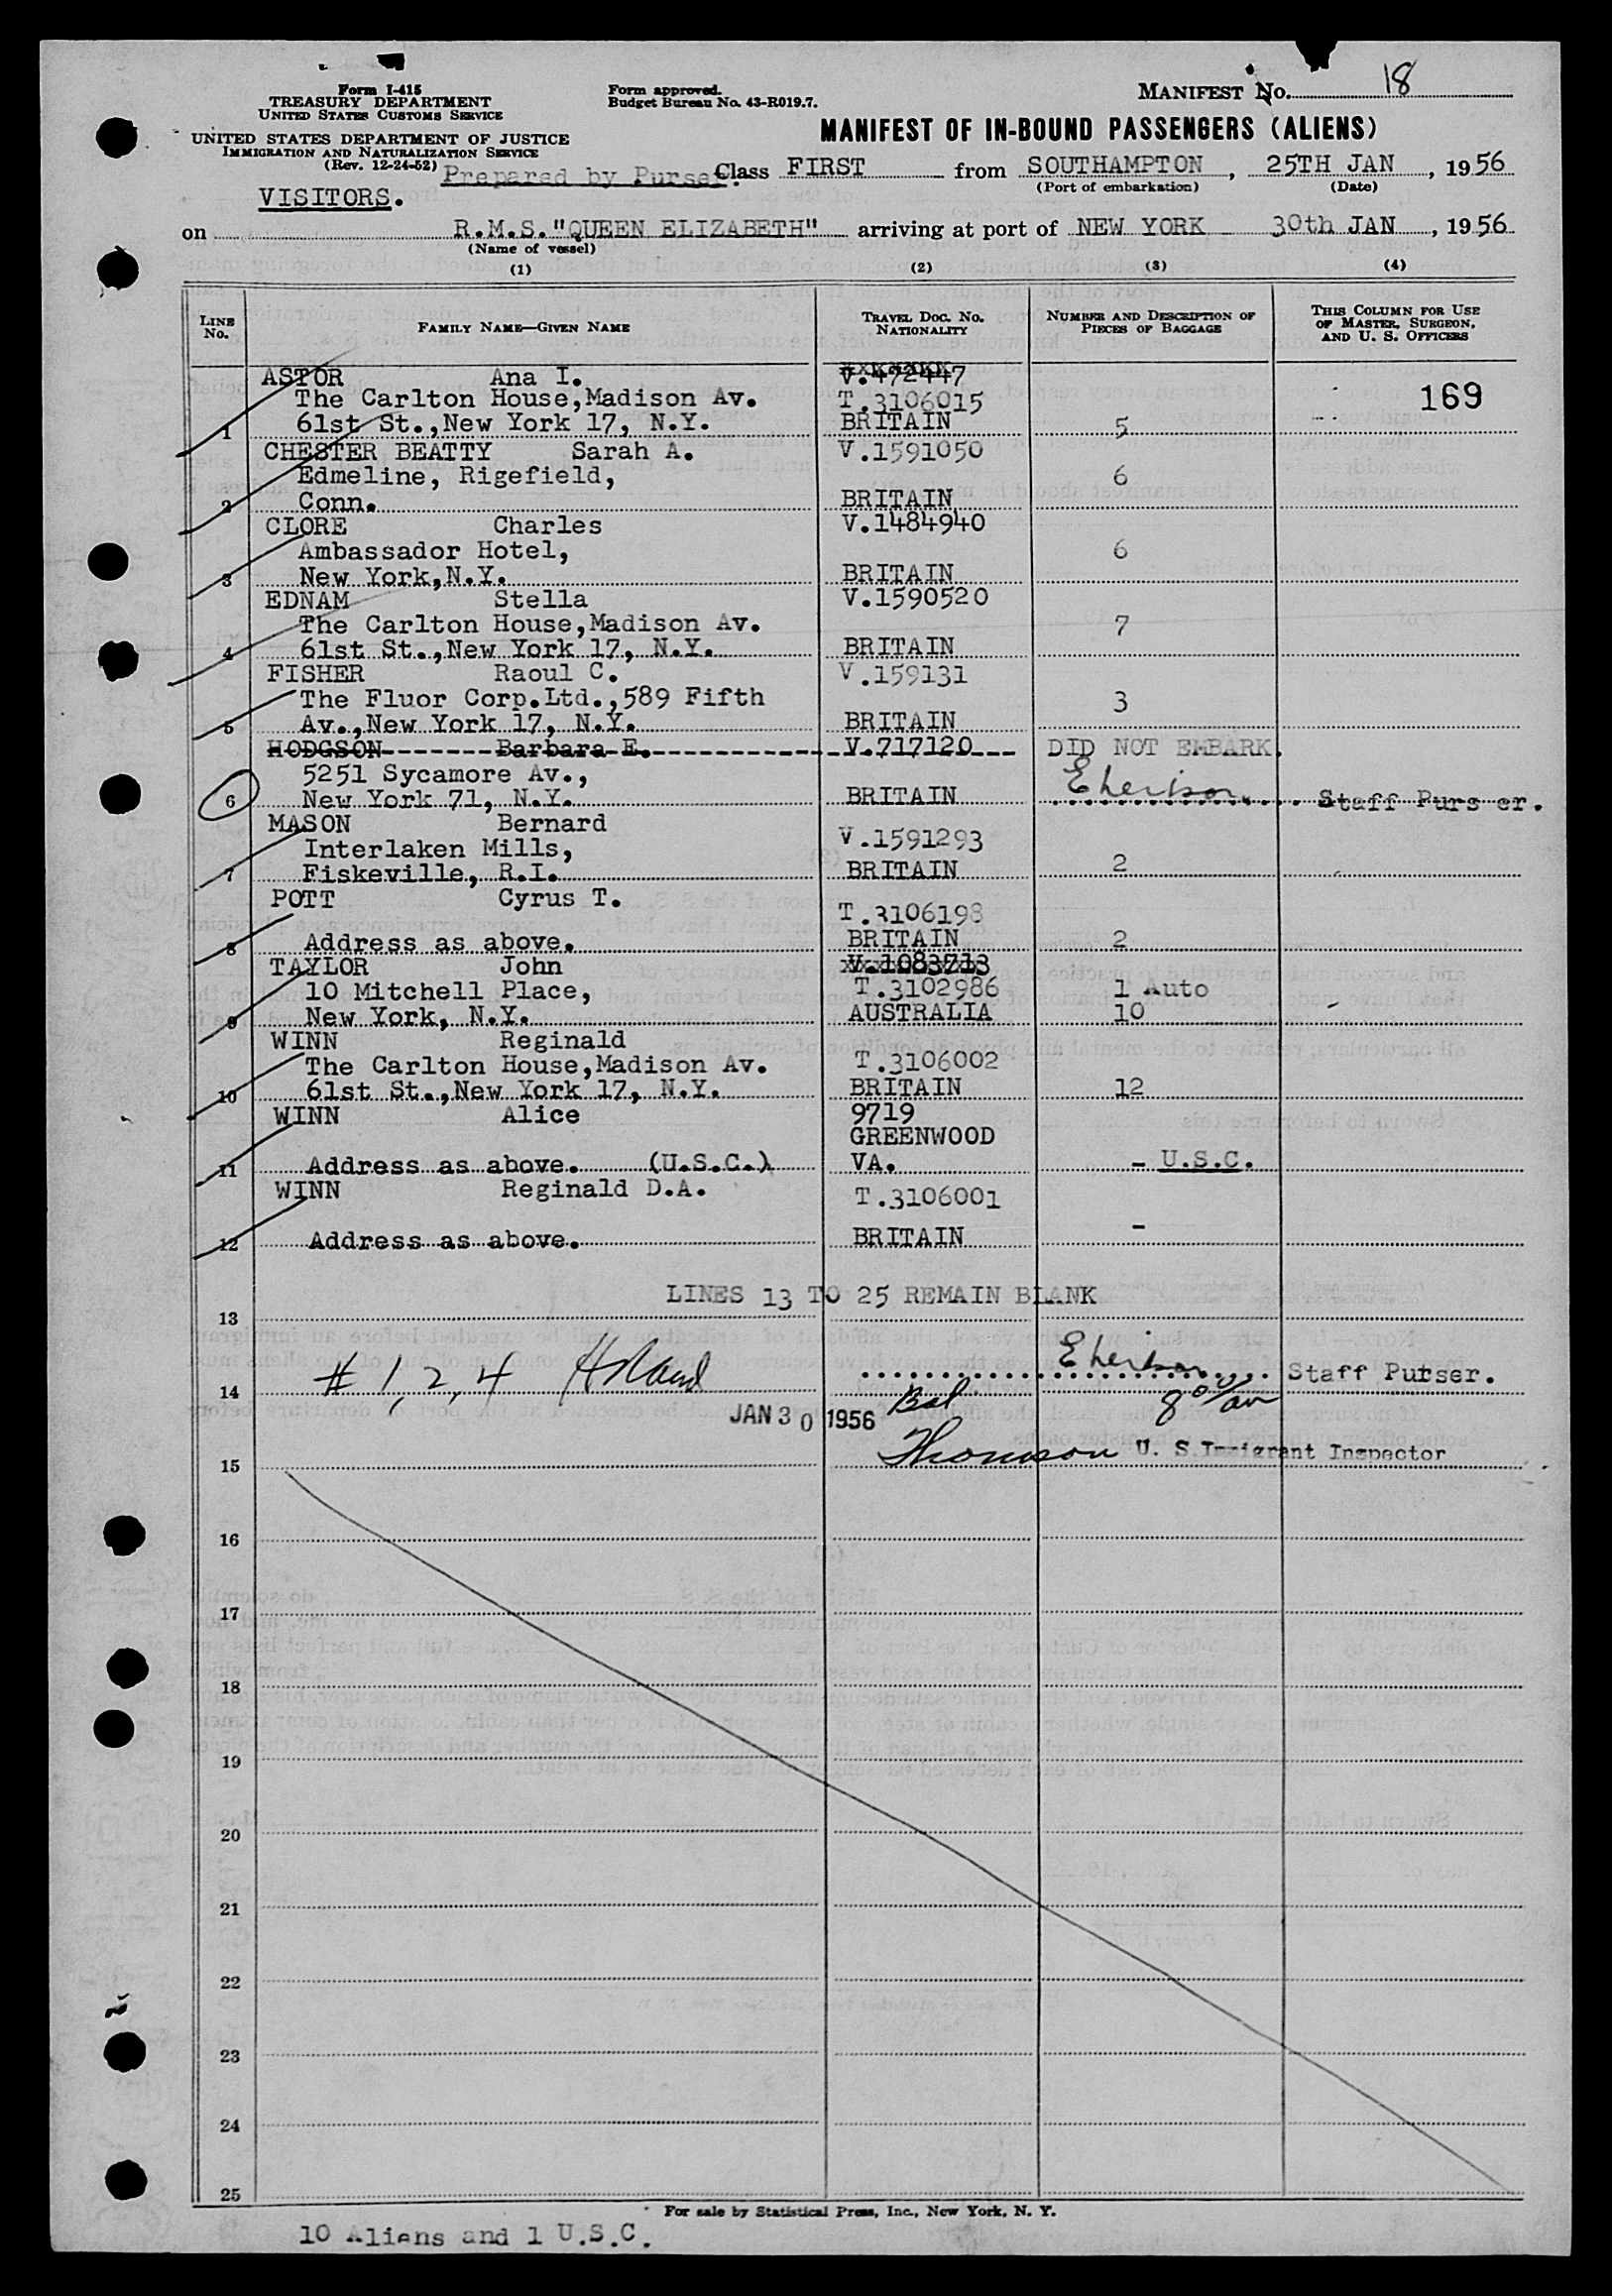 Form I-415
TREASURY DEPARTMENT
UNITED STATES CUSTOMS SERVICE
UNITED STATES DEPARTMENT OF JUSTICE
IMMIGRATION AND NATURALIZATION SERVICE
(Rev. 12-24-52)
Form approved.
Budget Bureau No. 43-R019.7.
MANIFEST No. 18
MANIFEST OF IN-BOUND PASSENGERS (ALIENS)
Prepared by Purser. Class FIRST from SOUTHAMPTON, 25TH JAN, 1956
(Port of embarkation) (Date)
VISITORS.
on R.M.S. "QUEEN ELIZABETH" arriving at port of NEW YORK 30th JAN, 1956
(Name of vessel)
(1) (2) (3) (4)
LINE No. FAMILY NAME—GIVEN NAME TRAVEL DOC. No. NATIONALITY NUMBER AND DESCRIPTION OF PIECES OF BAGGAGE THIS COLUMN FOR USE OF MASTER, SURGEON, AND U. S. OFFICERS
ASTOR Ana I. V.472447
The Carlton House,Madison Av. T.3106015 169
1 61st St.,New York 17, N.Y. BRITAIN 5
CHESTER BEATTY Sarah A. V.1591050
Edmeline, Rigefield, 6
2 Conn. BRITAIN
CLORE Charles V.1484940
Ambassador Hotel, 6
3 New York,N.Y. BRITAIN
EDNAM Stella V.1590520
The Carlton House,Madison Av. 7
4 61st St.,New York 17, N.Y. BRITAIN
FISHER Raoul C. V.159131
The Fluor Corp.Ltd.,589 Fifth 3
5 Av.,New York 17, N.Y. BRITAIN
HODGSON Barbara E. V.717120 DID NOT EMBARK.
5251 Sycamore Av.,
6 New York 71, N.Y. BRITAIN Staff Purser.
MASON Bernard V.1591293
Interlaken Mills,
7 Fiskeville, R.I. BRITAIN 2
POTT Cyrus T. T.3106198
8 Address as above. BRITAIN 2
TAYLOR John V.1083713
10 Mitchell Place, T.3102986 1 Auto
9 New York, N.Y. AUSTRALIA 10
WINN Reginald
The Carlton House,Madison Av. T.3106002
10 61st St.,New York 17, N.Y. BRITAIN 12
WINN Alice 9719
GREENWOOD
11 Address as above. (U.S.C.) VA. - U.S.C.
WINN Reginald D.A. T.3106001
12 Address as above. BRITAIN -
LINES 13 TO 25 REMAIN BLANK
13
# 1, 2, 4 Staff Purser.
14
JAN 30 1956
Thomson U. S. Immigrant Inspector
15
16
17
18
19
20
21
22
23
24
25
For sale by Statistical Press, Inc., New York, N. Y.
10 Aliens and 1 U.S.C.